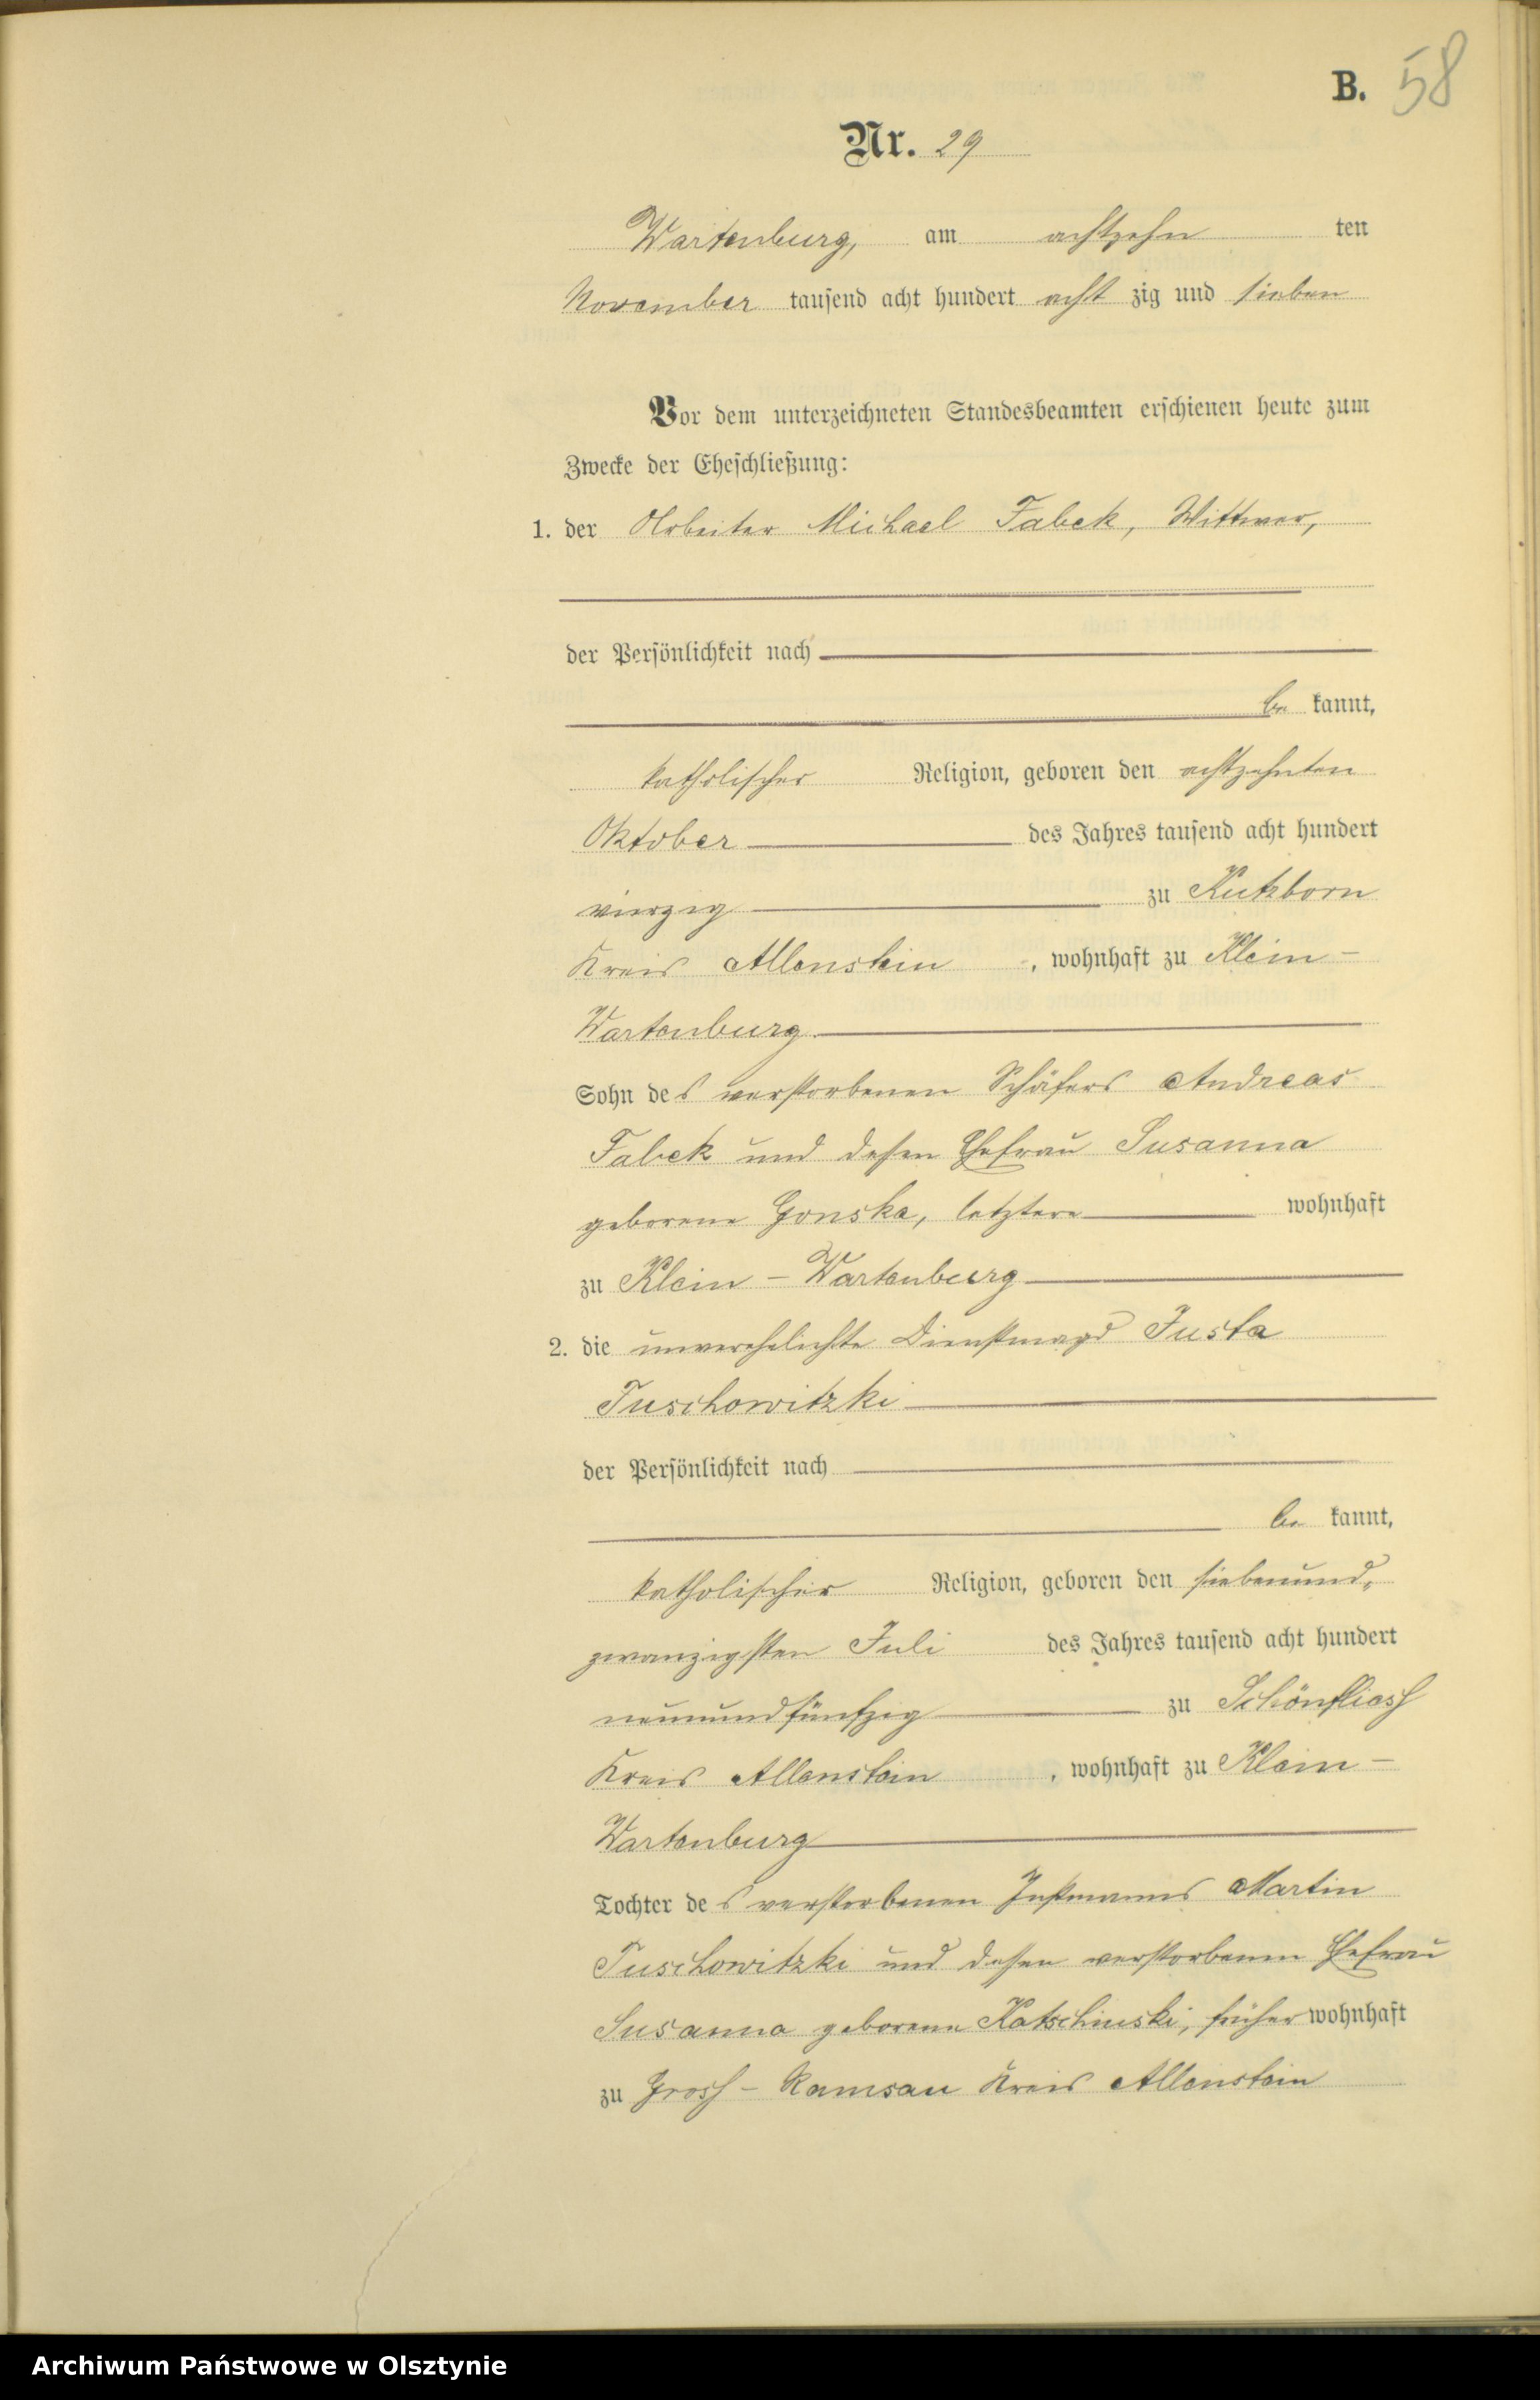 B. 58
Nr. 29
Wartenburg, am achtzehn ten
November tausend acht hundert acht zig und sieben
Vor dem unterzeichneten Standesbeamten erschienen heute zum
Zwecke der Eheschließung:
1. der Arbeiter Michael Fabek, Wittwer,
der Persönlichkeit nach
be kannt,
katholischer Religion, geboren den achtzehnten
Oktober des Jahres tausend acht hundert
vierzig zu Kutzborn
Kreis Allenstein, wohnhaft zu Klein-
Wartenburg.
Sohn des verstorbenen Schäfers Andreas
Fabek und dessen Ehefrau Susanna
geborene Gonska, letztere wohnhaft
zu Klein-Wartenburg
2. die unverehelichte Dienstmagd Justa
Tuschowitzki
der Persönlichkeit nach
be kannt,
katholischer Religion, geboren den siebenund-
zwanzigsten Juli des Jahres tausend acht hundert
neunundfünfzig zu Schönfliess
Kreis Allenstein, wohnhaft zu Klein-
Wartenburg
Tochter des verstorbenen Instmanns Martin
Tuschowitzki und dessen verstorbenen Ehefrau
Susanna geborene Katschinski, früher wohnhaft
zu Gross-Ramsau Kreis Allenstein
Archiwum Państwowe w Olsztynie